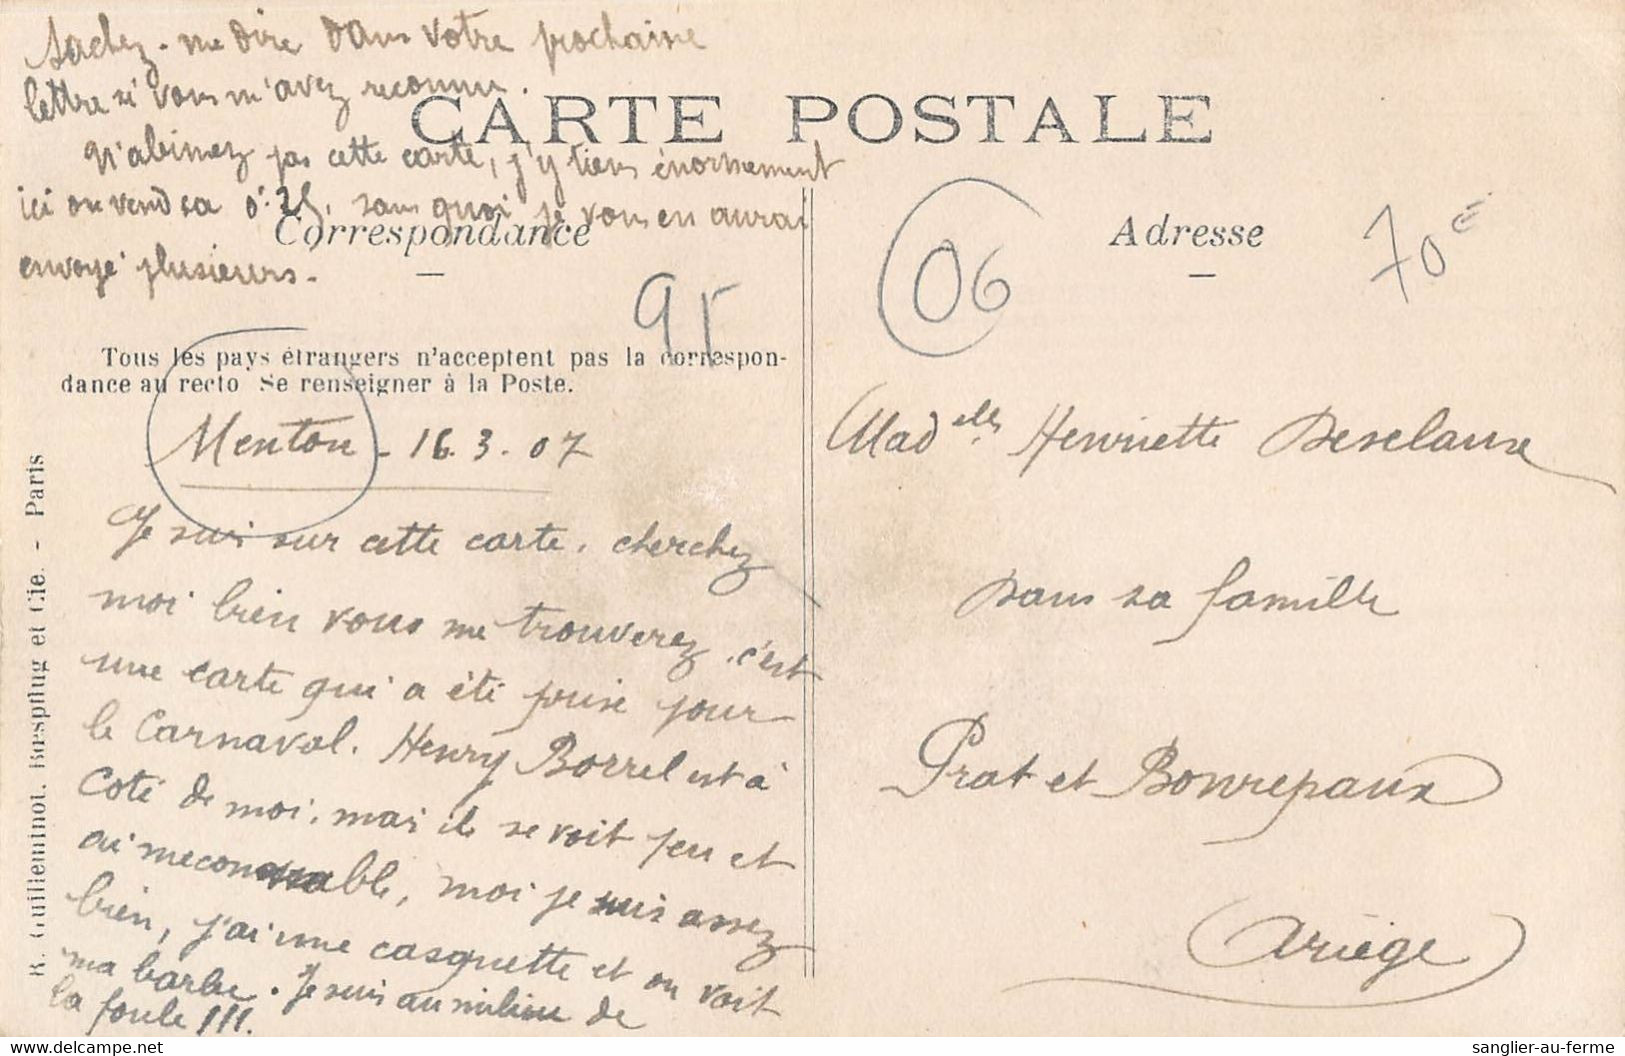 Sachez-me dire dans votre prochaine
lettre si vous m'avez reconnu.
N'abimez pas cette carte, j'y tiens énormement
ici on vend sa 0f.25, sans quoi je vous en aurai
envoyé plusieurs.
CARTE POSTALE
Correspondance
Adresse
06
70 €
95
Tous les pays étrangers n'acceptent pas la correspon-
dance au recto Se renseigner à la Poste.
Menton - 16.3.07
Je suis sur cette carte, cherchez
moi bien vous me trouverez, c'est
une carte qui a été prise pour
le Carnaval. Henry Borrel est à
Coté de moi, mais il se voit peu et
moi je suis assez
bien, j'ai une casquette et on voit
ma barbe. Je suis au milieu de
la foule !!!
Madelle Henriette Desclaux
Dans sa famille
Prat et Bonrepaux
Ariège
R. Guilleminot, Bœspflug et Cie. - Paris
sanglier-au-ferme